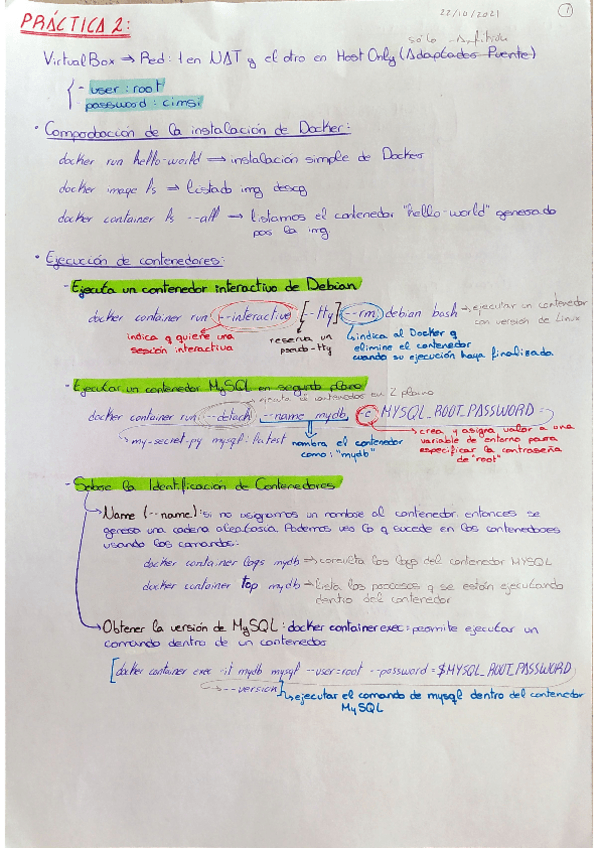 22/10/2021
1
PRÁCTICA 2:
sólo
VirtualBox → Red: 1 en NAT y el otro en Host Only (Adaptador Puente)
- user: root
password: cimsi
· Comprobación de la instalación de Docker:
docker run hello-world ⇒ instalación simple de Docker
docker image ls ⇒ Listado img descg
docker container ls --all ⇒ listamos el contenedor "hello-world" generado
por la img
· Ejecución de contenedores:
- Ejecuta un contenedor interactivo de Debian
docker container run --interactive [--tty] --rm debian bash → ejecutar un contenedor
con versión de Linux
indica q quiere una
sesión interactiva
reserva un
pseudo-tty
indica al Docker q
elimine el contenedor
cuando su ejecución haya finalizado
- Ejecutar un contenedor MySQL en segundo plano
ejecuta el contenedor en 2 plano
docker container run --detach --name mydb -e MYSQL_ROOT_PASSWORD=
my-secret-py mysql:latest
nombra el contenedor
como: "mydb"
crea y asigna valor a una
variable de entorno para
especificar la contraseña
de "root"
- Sobre la Identificación de Contenedores
Name (--name): si no usaramos un nombre al contenedor, entonces se
genera una cadena aleatoria. Podemos ver lo q sucede en los contenedores
usando los comandos:
docker container logs mydb ⇒ consulta los logs del contenedor MYSQL
docker container top mydb ⇒ Lista los procesos q se están ejecutando
dentro del contenedor
Obtener la versión de MySQL: docker container exec: permite ejecutar un
comando dentro de un contenedor
[docker container exec -it mydb mysql --user=root --password=$MYSQL_ROOT_PASSWORD
--version]
ejecutar el comando de mysql dentro del contenedor
MySQL